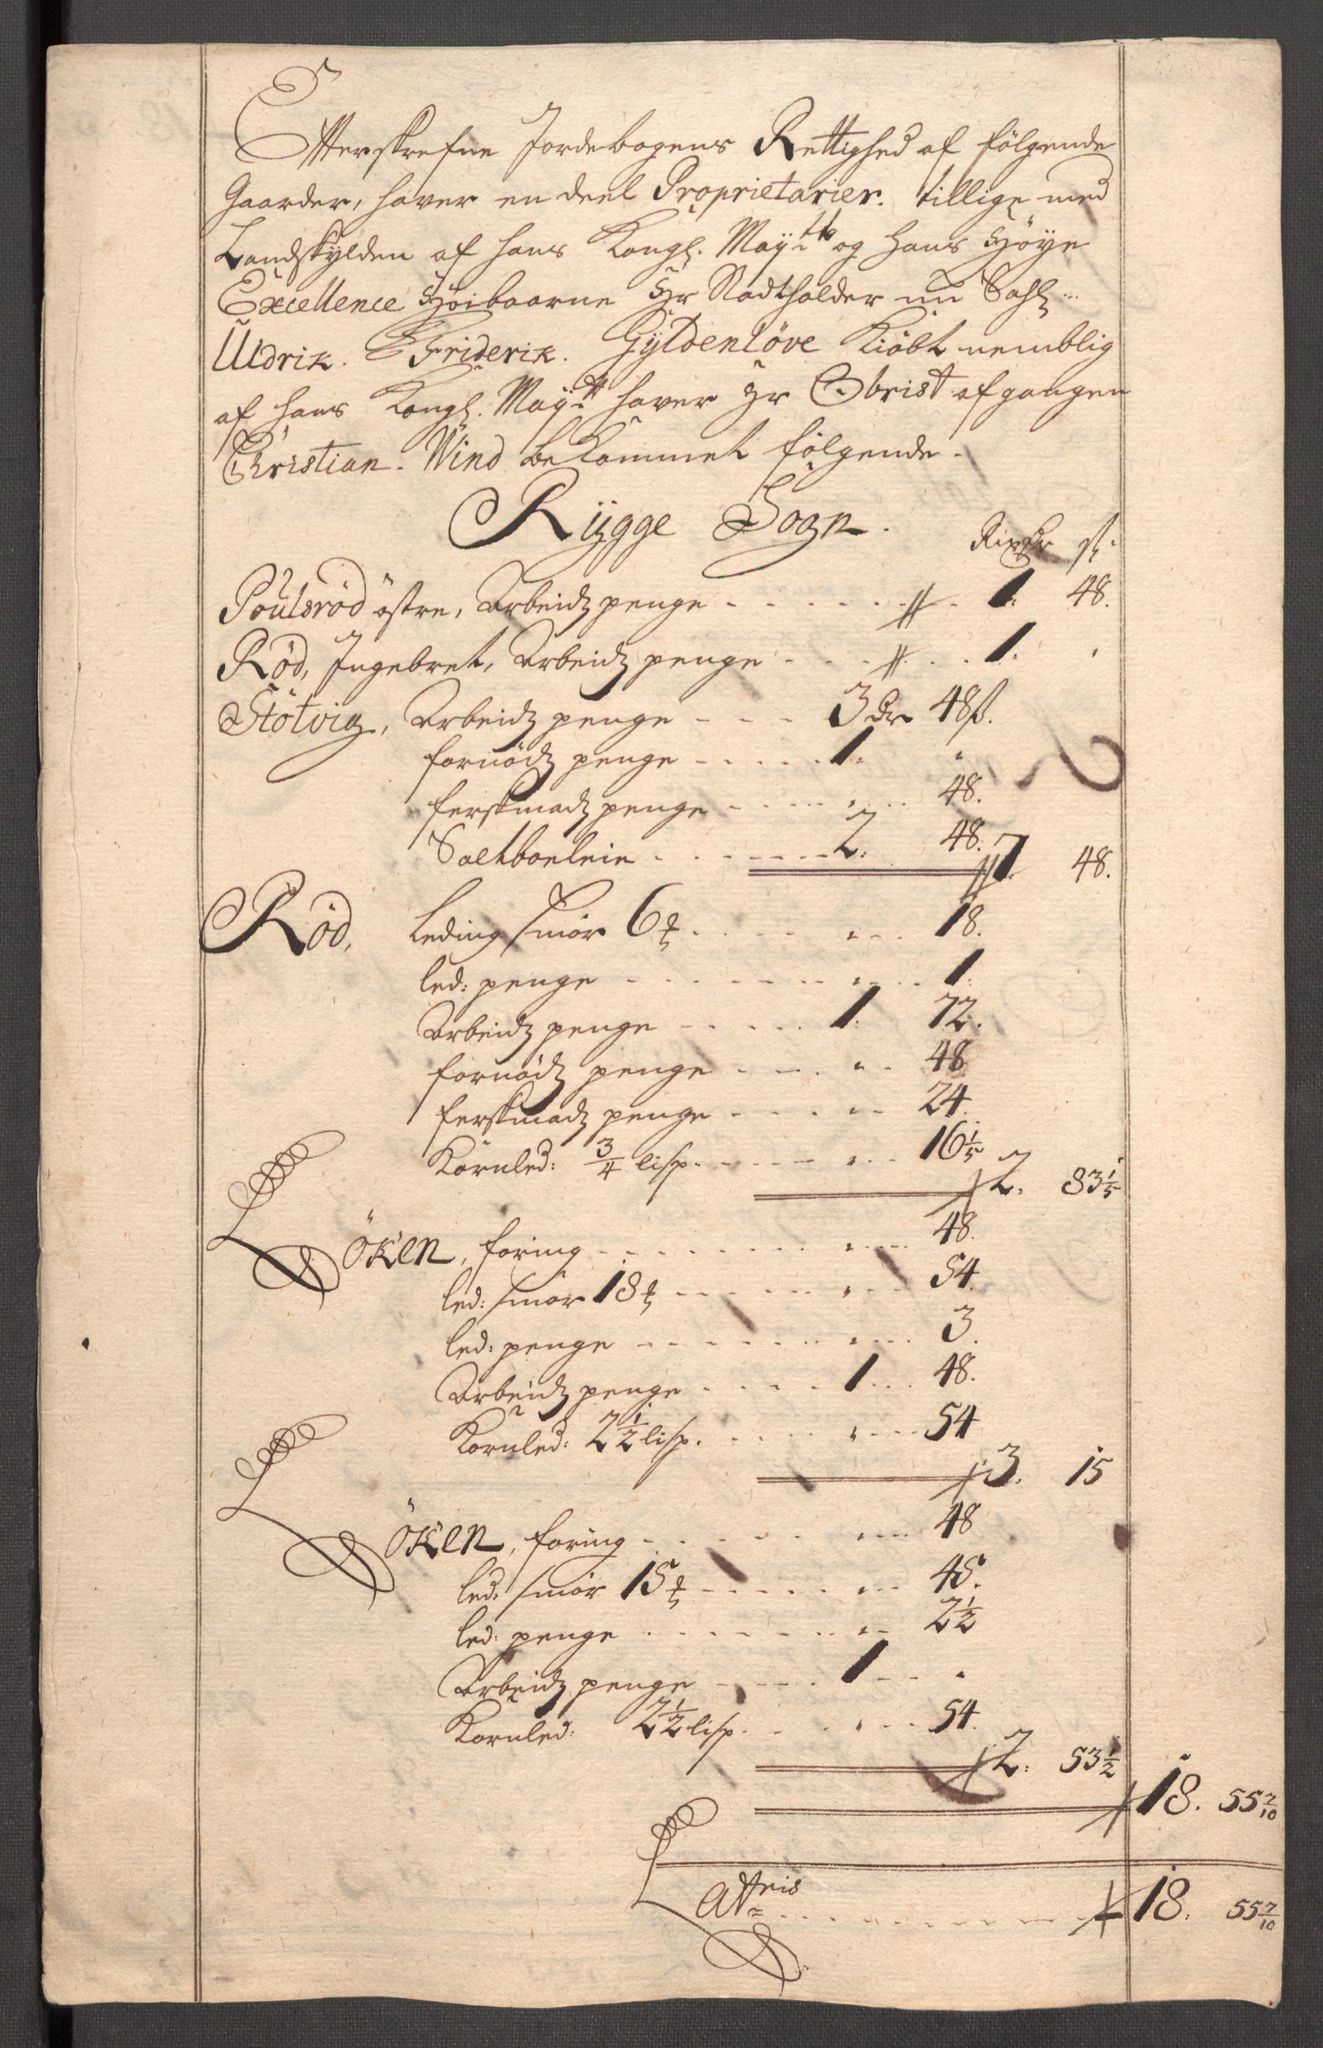 Efterskrefne Jordebogens Rettighed af følgende
Gaarder, haver en deel Proprietarier. tillige med
Landskylden af hans Kongl. Mayttt og Hans Höye
Excellence Höibaarne Hr Stadtholder nu Sahl.
Uldrik. Friderik. Gyldenlöve Kiöbt nemblig
af hans Kongl. Maytt haver Hr Obrist afgangen
Christian. Wind bekommet følgende.
Rygge Sogn.
Rixdr ß.
Poulsröd östre, Arbeidtz penge 1. 48.
Röd, Ingebret, Arbeidtz penge 1.
Stötvig, Arbeidtz penge 3 dr 48 ß.
fornödtz penge 1.
ferskmadtz penge 48.
Saltboeleie 2. 48. 7. 48.
Röd, leding smör 6 ℔ 18.
led: penge 1.
Arbeidtz penge 1. 72.
fornödtz penge 48
ferskmadtz penge 24.
Kornled: 3/4 lisp. 16 1/5 2. 83 1/5
Öken, foring 48.
led: smör 18 ℔ 54.
led: penge 3.
Arbeidtz penge 1 48.
Kornled: 2 1/2 lisp. 54 3. 15
Öken, foring 48
led: smör 15 ℔ 45.
led: penge 2 1/2
Arbeidtz penge 1
Kornled: 2 1/2 lisp. 54. 2. 53 1/2
18. 55 7/10
18. 55 7/10